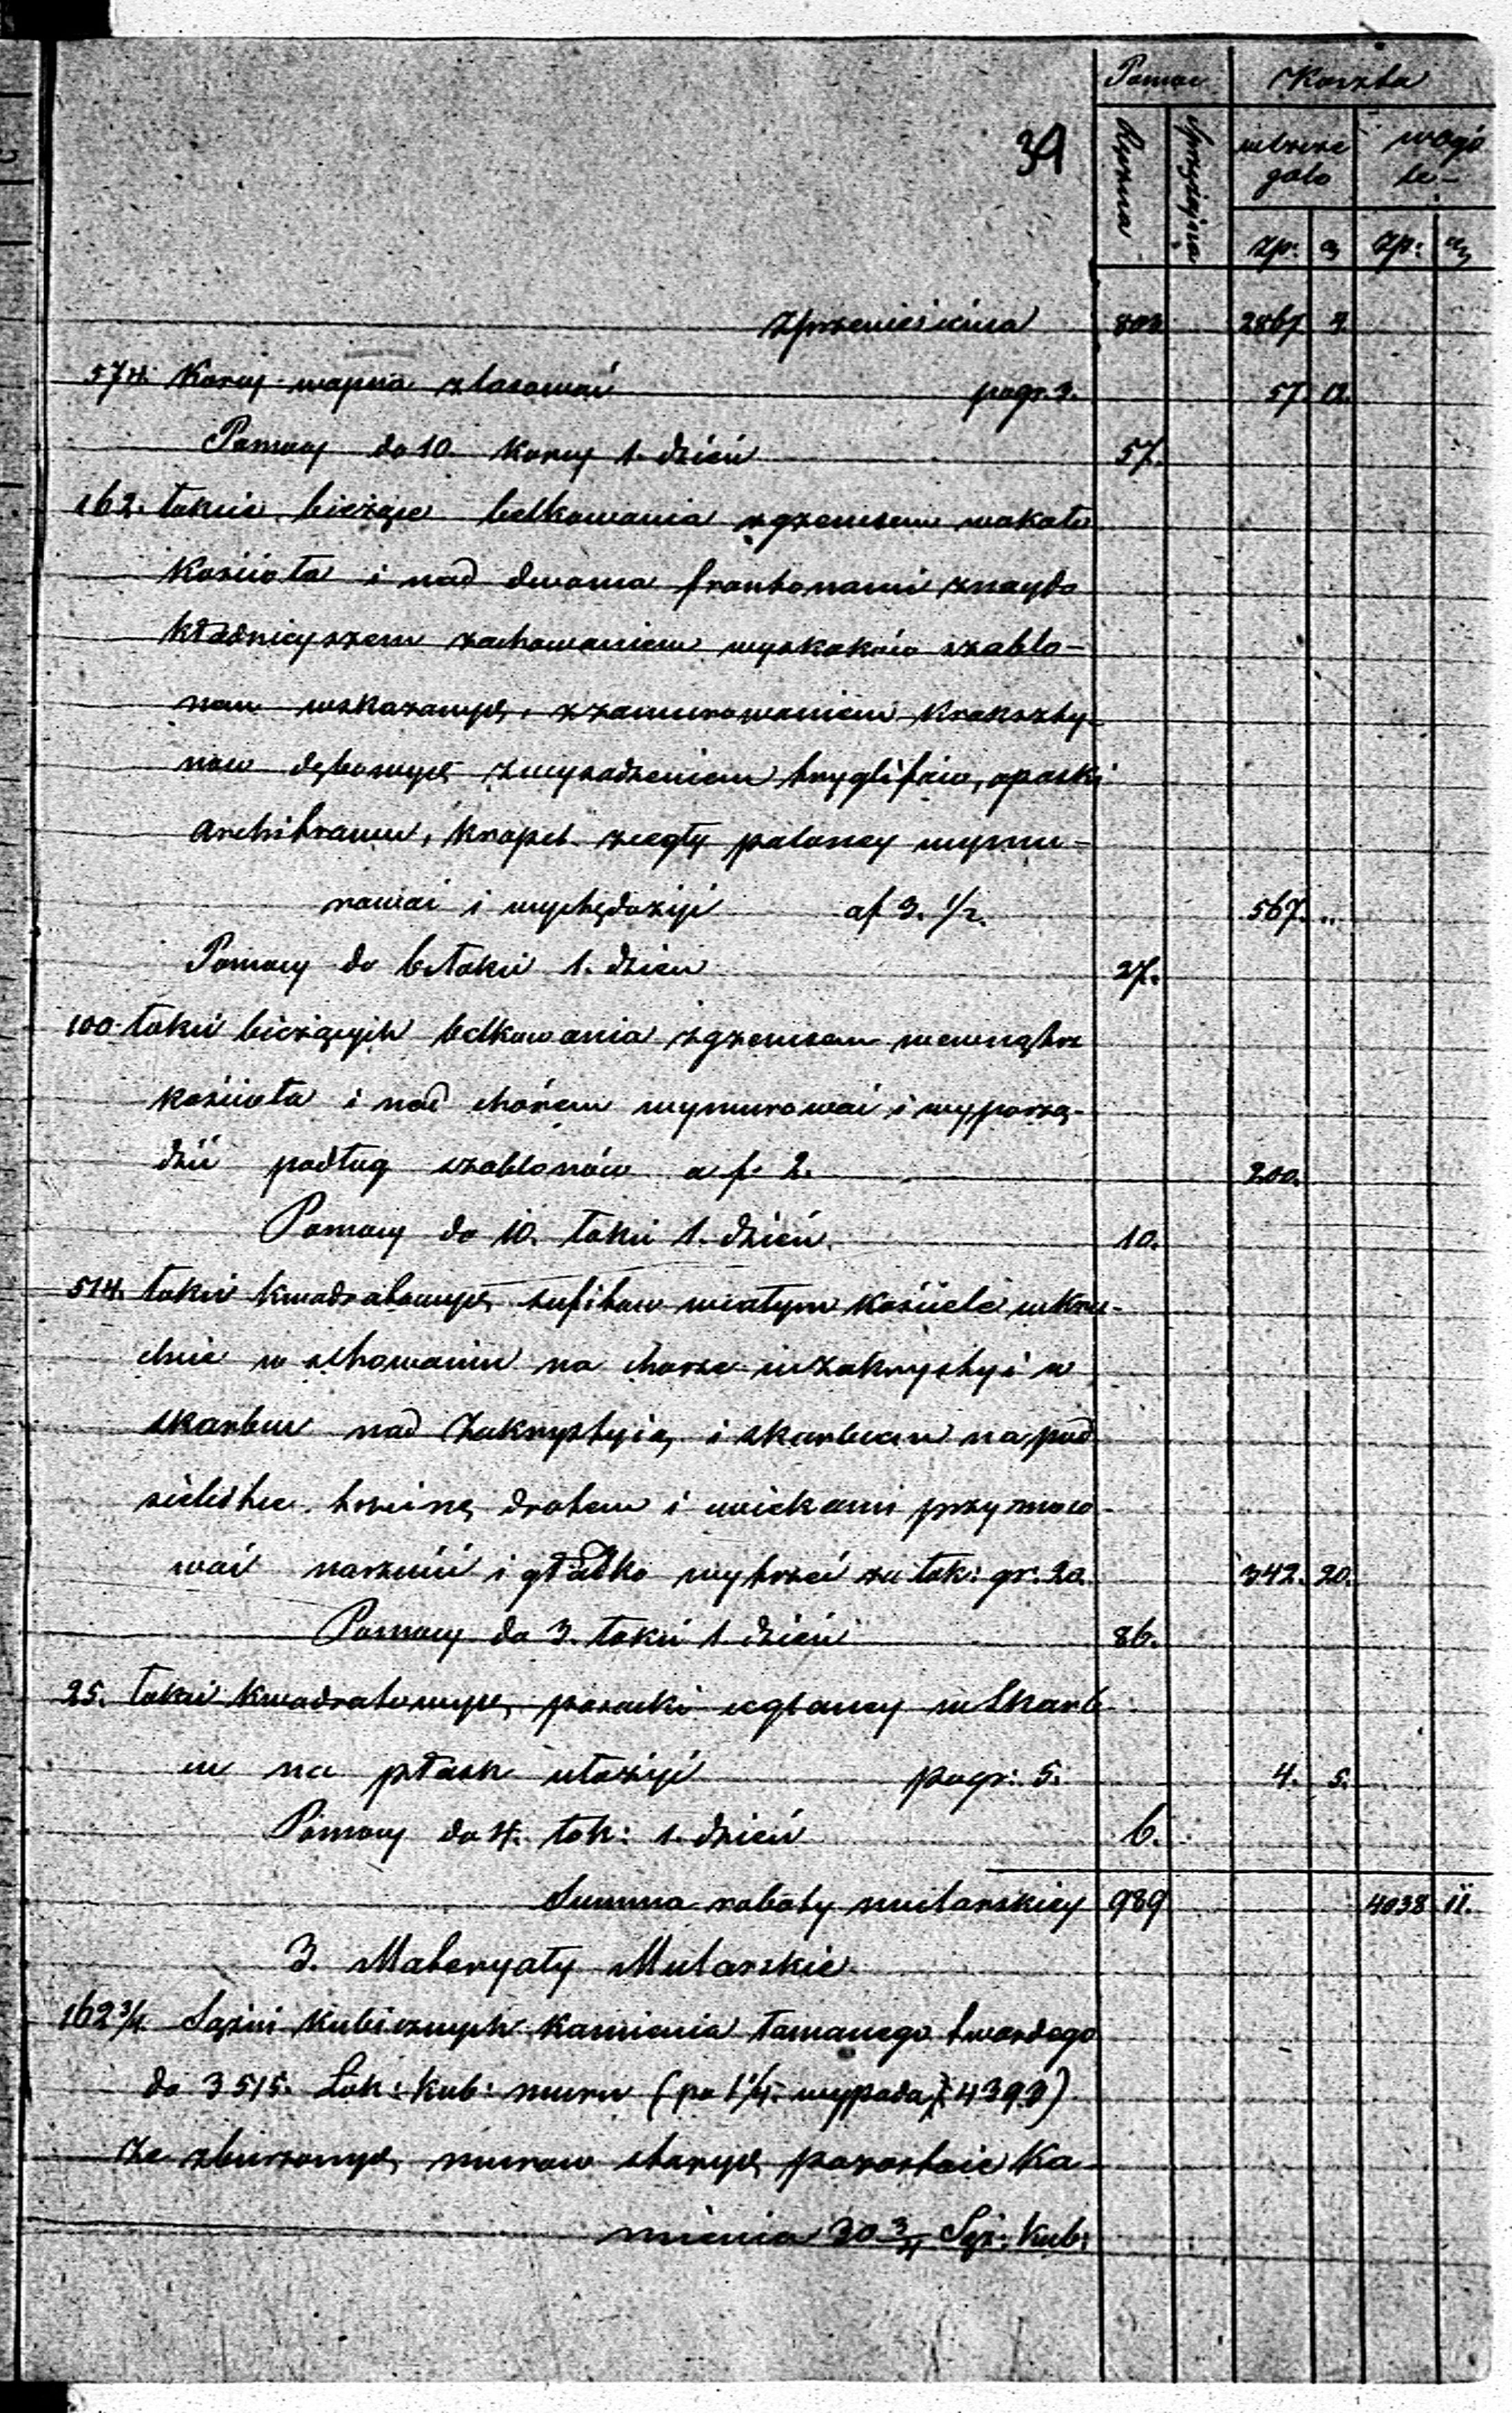 39
Pomoc Koszta
Ręczna Sprzężajna wszcze wogó
golo le-
zp: g zp: g
Zprzeniesienia 803 2867 4.
574. Korcy wapna zlasować pogr. 3. 57. 12.
Pomocy do 10. Korcy 1. dzień 57.
162. łokcie bieżące belkowania zgzemsem wokoło
Kościoła i nad dwoma frontonami znaydo
kładnieyszem zachowaniem wyskoków szablo-
nem wskazanych, zzamurowaniem Krokszty-
now dębowych zwysadzeniem tryglifów, opaski
Architrawu, Kropel zcegły paloney wymu-
rować i wychędożyć af 3. 1/2. 567. "
Pomocy do 6. łokci 1. dzien 27.
100. łokci bieżących belkowania zgzemsem wewnątrz
kościoła i nad chórem wymurować i wyporzą-
dzić podług szablonów a f. 2. 200.
Pomocy do 10. łokci 1. dzień. 10.
514. łokci kwadratowych sufitow wcałym Kościele wKru-
chcie w schowaniu na chorze wzakrystyi w
skarbcu nad Zakrystyią i skarbcem na pod
siebitce trzciną drotem i cwiekami przymoco
wać narzucić i gładko wytrzeć za łok: gr. 20. 342. 20.
Pomocy do 3. łokci 1. dzień 86.
25. łokci kwadratowych, posadzki ceglaney wSkarb
cu na płask ułożyć pogr: 5. 4. 5.
Pomocy do 4. łok: 1. dzień 6.
Summa roboty mularskiey 989 4038 11.
3. Materyały Mularskie
162 3/4. Sążni Kubicznych Kamienia łamanego twardego
do 3515. Łok: Kub: muru (po 1 1/4. wypada 4393)
Ze zburzonych murow starych pozostaie Ka-
mienia 30 3/4 Sąż: Kub: